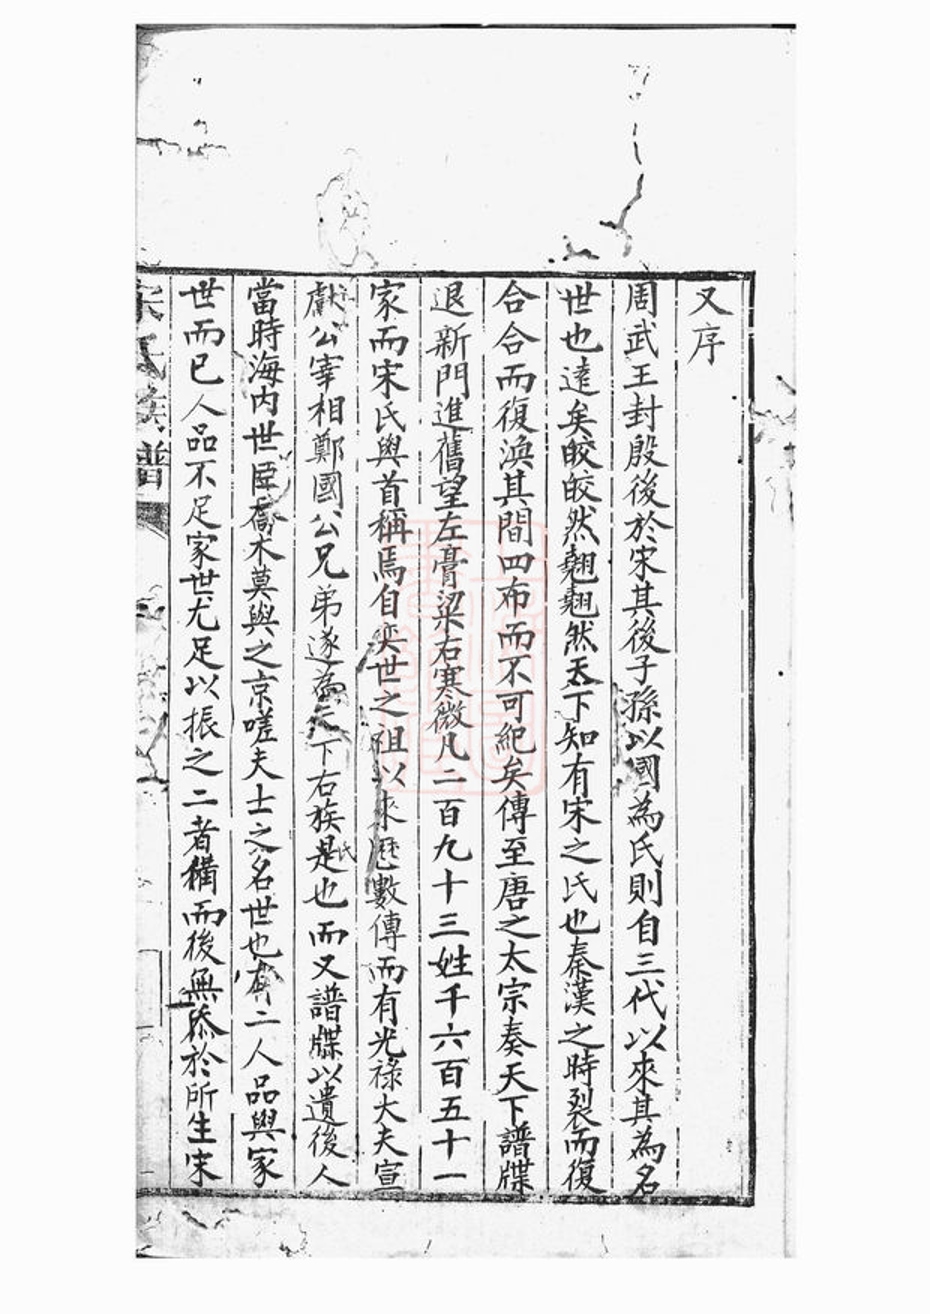 又序
周武王封殷後於宋其後子孫以國為氏則自三代以來其為名
世也逺矣皎皎然翹翹然天下知有宋之氏也秦漢之時裂而復
合合而復渙其間四布而不可紀矣傳至唐之太宗奏天下譜牒
退新門進舊望左膏粱右寒微凡二百九十三姓千六百五十一
家而宋氏與首稱焉自奕世之祖以來歷數傳而有光祿大夫宣
獻公宰相鄭國公兄弟遂為天下右族是氏也而又譜牒以遺後人
當時海内世臣喬木莫與之京嗟夫士之名世也有二人品與家
世而已人品不足家世尤足以振之二者備而後無忝於所生宋
宋氏族譜